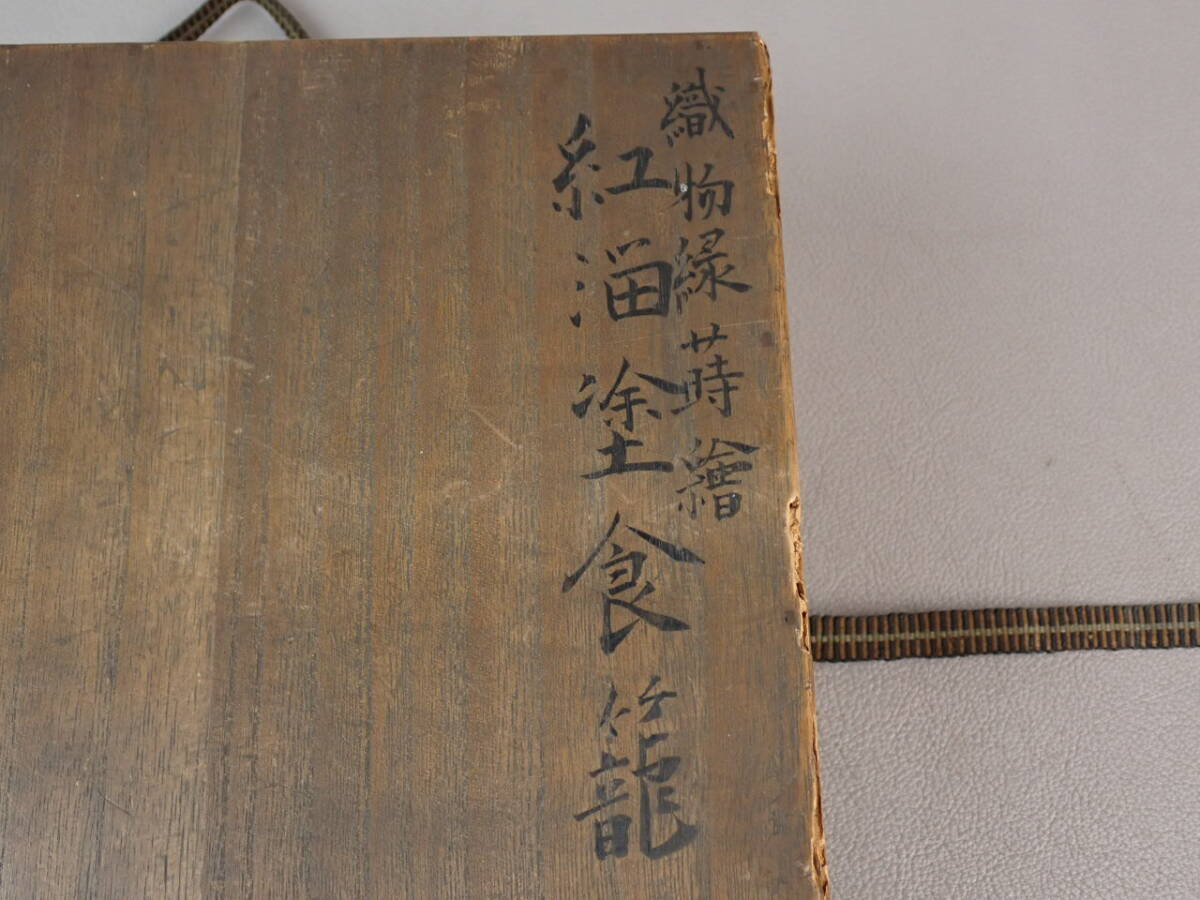 織物緑蒔繪
紅溜塗食籠